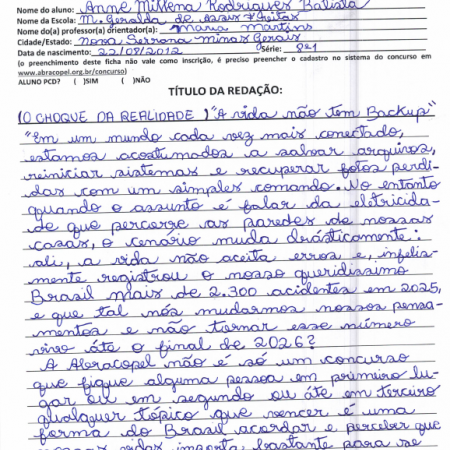 Nome do aluno: Anne Millena Rodrigues Batista
Nome da Escola: M. Geralda de Assis Freitas
Nome do(a) professor(a) orientador(a): Maria Martins
Cidade/Estado: Nova Serrana Minas Gerais
Data de nascimento: 22/07/2012 Série: 8º1
(o preenchimento desta ficha não vale como inscrição, é preciso preencher o cadastro no sistema do concurso em
www.abracopel.org.br/concurso)
ALUNO PCD? ( )SIM ( )NÃO
TÍTULO DA REDAÇÃO:
(O CHOQUE DA REALIDADE) "A vida não tem Backup"
"Em um mundo cada vez mais conectado,
estamos acostumados a salvar arquivos,
reiniciar sistemas e recuperar fotos perdi-
das com um simples comando. No entanto
quando o assunto é falar da eletricida-
de que percorre as paredes de nossas
casas, o cenário muda drásticamente:
ali, a vida não aceita erros e, infelis-
mente registrou o nosso queridissimo
Brasil mais de 2.300 acidentes em 2025,
e que tal nós mudarmos nossos pensa-
mentos e não tornar esse número
vivo áte o final de 2026?
A Abracopel não é só um concurso
que fique alguma pessoa em primeiro lu-
gar ou em segundo ou áte em terceiro
qualquer tópico que vencer é uma
forma do Brasil acordar e perceber que
nossas vidas importa bastante para se